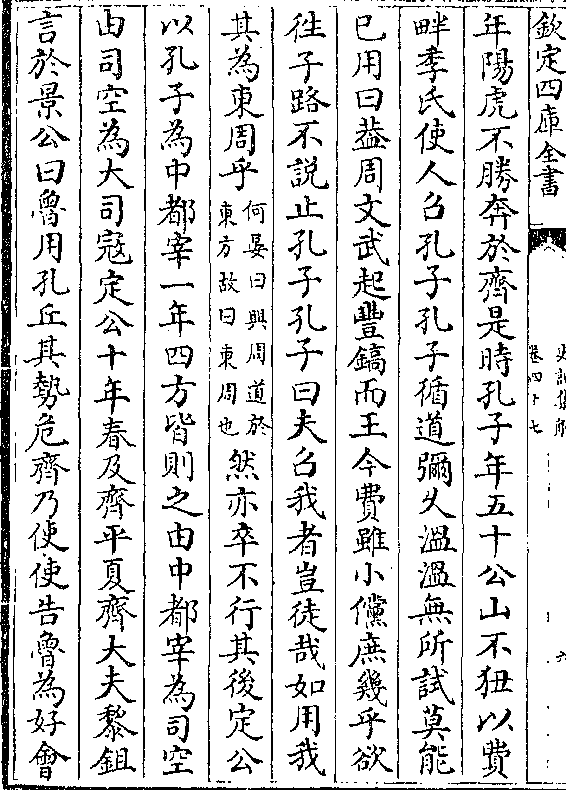 欽定四庫全書
史記集解
卷四十七
六
年陽虎不勝奔於齊是時孔子年五十公山不狃以費
畔季氏使人召孔子孔子循道彌久溫溫無所試莫能
已用曰葢周文武起豐鎬而王今費雖小儻庶幾乎欲
徃子路不說止孔子孔子曰夫召我者豈徒哉如用我
其為東周乎何晏曰興周道於
東方故曰東周也然亦卒不行其後定公
以孔子為中都宰一年四方皆則之由中都宰為司空
由司空為大司寇定公十年春及齊平夏齊大夫黎鉏
言於景公曰魯用孔丘其勢危齊乃使使告魯為好會